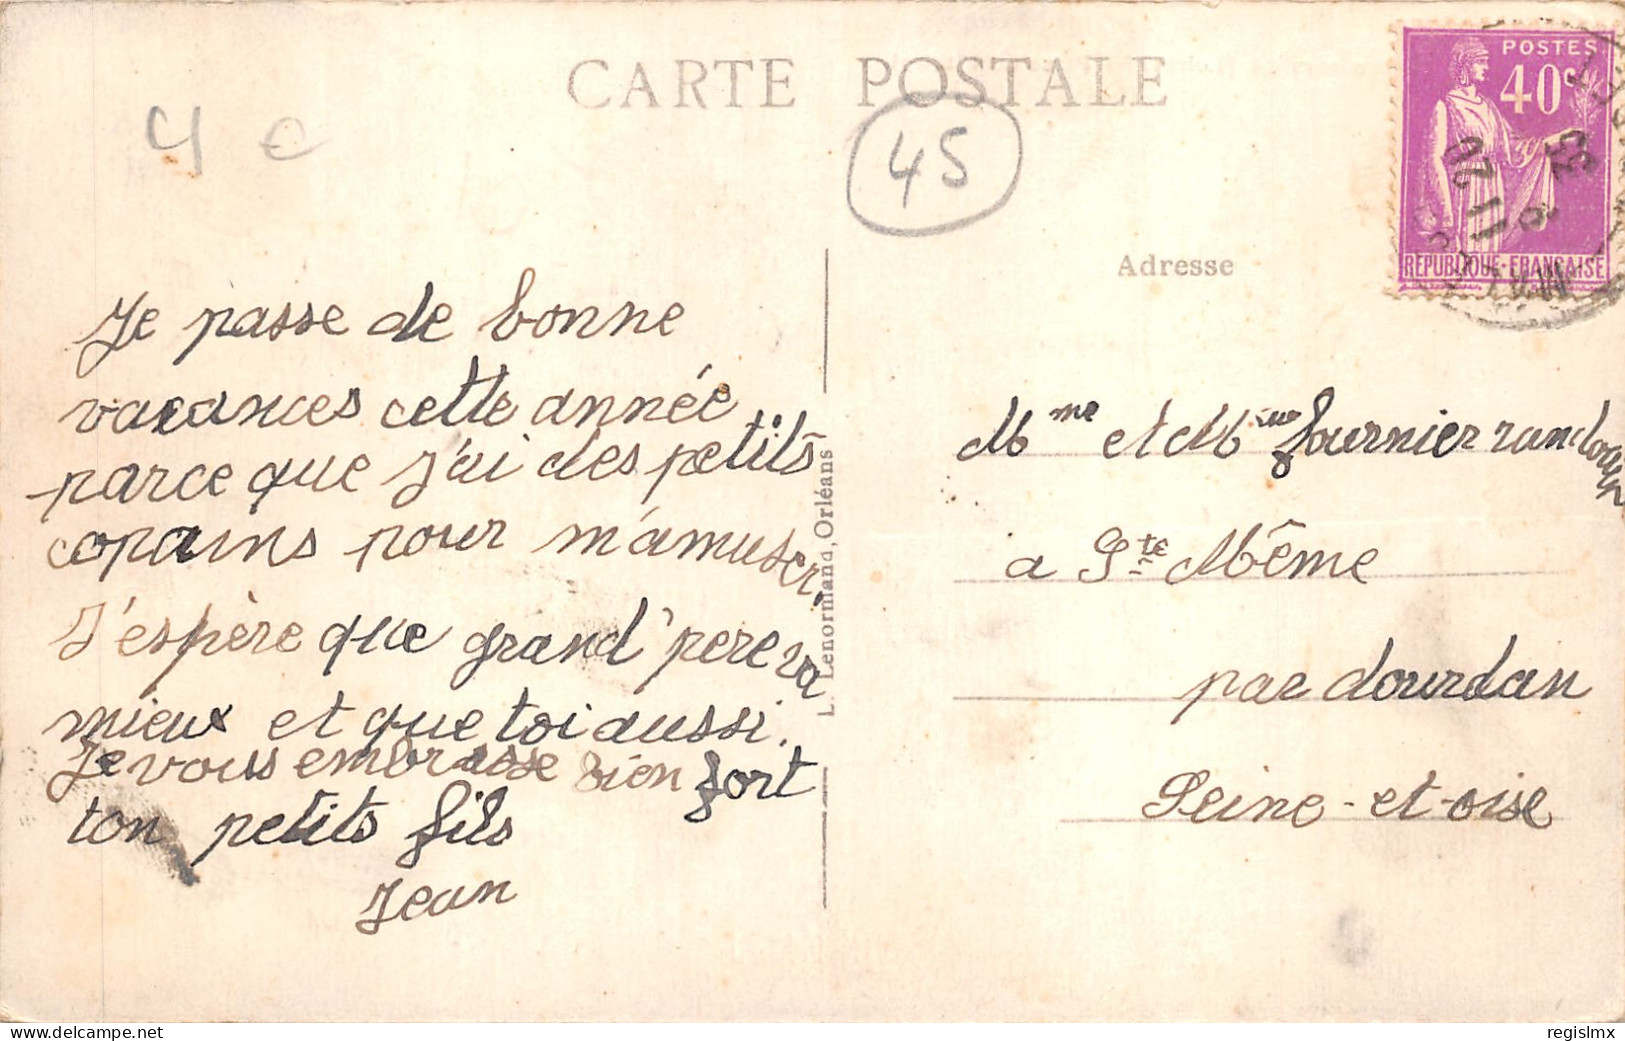 CARTE POSTALE
4 €
45
POSTES
40c
RÉPUBLIQUE-FRANÇAISE
11 20
35
Adresse
Je passe de bonne
vacances cette année
parce que j'ai des petits
copains pour m'amuser.
J'espère que grand'pere va
mieux et que toi aussi.
Je vous embrasse bien fort
ton petits fils
Jean
L. Lenormand, Orléans
Mme et Mieur fournier randouin
a Ste Même
par dourdan
Seine-et-oise
delcampe.net
regislmx